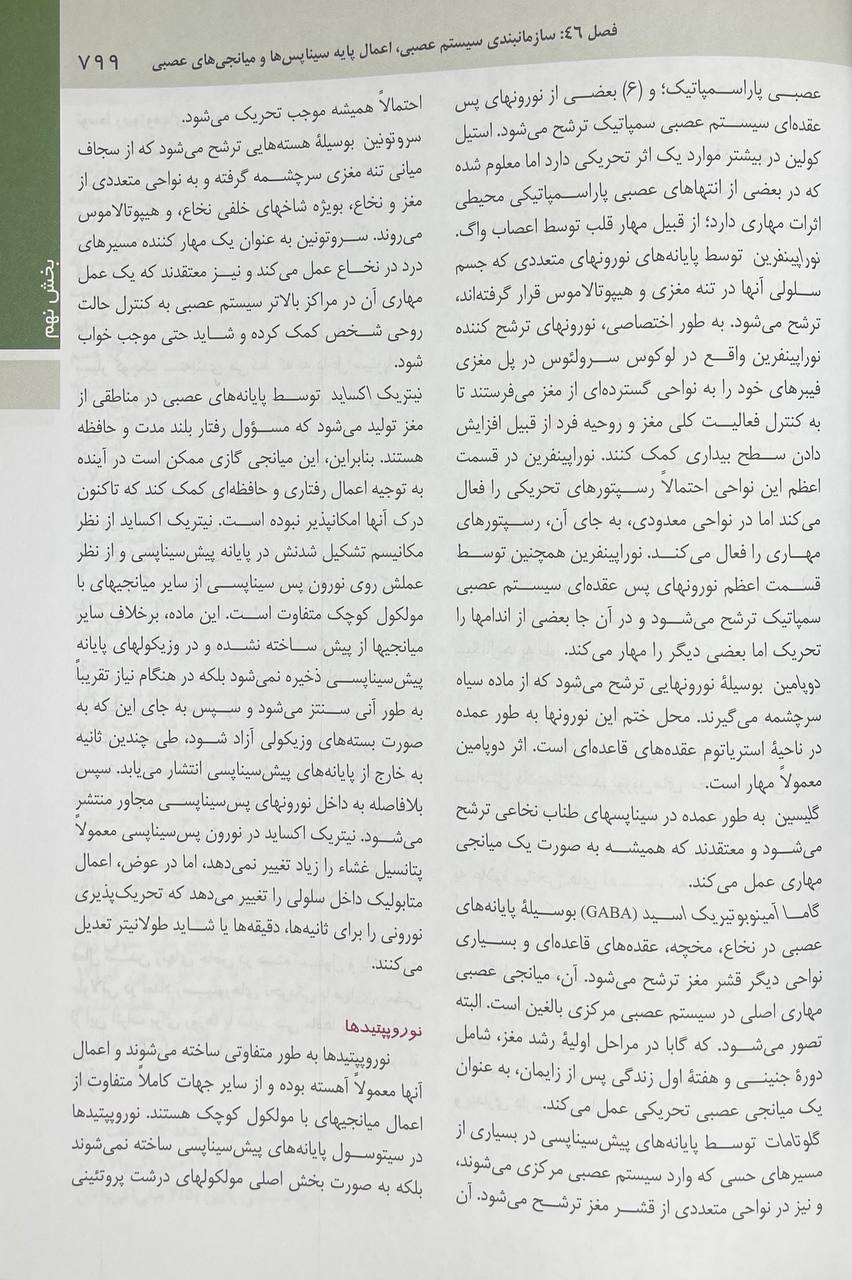 فصل ٤٦: سازمانبندی سیستم عصبی، اعمال پایه سیناپس‌ها و میانجی‌های عصبی ۷۹۹
بخش نهم
عصبی پاراسمپاتیک؛ و (۶) بعضی از نورونهای پس
عقده‌ای سیستم عصبی سمپاتیک ترشح می‌شود. استیل
کولین در بیشتر موارد یک اثر تحریکی دارد اما معلوم شده
که در بعضی از انتهاهای عصبی پاراسمپاتیکی محیطی
اثرات مهاری دارد؛ از قبیل مهار قلب توسط اعصاب واگ.
نوراپینفرین توسط پایانه‌های نورونهای متعددی که جسم
سلولی آنها در تنه مغزی و هیپوتالاموس قرار گرفته‌اند،
ترشح می‌شود. به طور اختصاصی، نورونهای ترشح کننده
نوراپینفرین واقع در لوکوس سرولئوس در پل مغزی
فیبرهای خود را به نواحی گسترده‌ای از مغز می‌فرستند تا
به کنترل فعالیت کلی مغز و روحیه فرد از قبیل افزایش
دادن سطح بیداری کمک کنند. نوراپینفرین در قسمت
اعظم این نواحی احتمالاً رسپتورهای تحریکی را فعال
می‌کند اما در نواحی معدودی، به جای آن، رسپتورهای
مهاری را فعال می‌کند. نوراپینفرین همچنین توسط
قسمت اعظم نورونهای پس عقده‌ای سیستم عصبی
سمپاتیک ترشح می‌شود و در آن جا بعضی از اندامها را
تحریک اما بعضی دیگر را مهار می‌کند.
دوپامین بوسیلهٔ نورونهایی ترشح می‌شود که از ماده سیاه
سرچشمه می‌گیرند. محل ختم این نورونها به طور عمده
در ناحیهٔ استریاتوم عقده‌های قاعده‌ای است. اثر دوپامین
معمولاً مهار است.
گلیسین به طور عمده در سیناپسهای طناب نخاعی ترشح
می‌شود و معتقدند که همیشه به صورت یک میانجی
مهاری عمل می‌کند.
گاما آمینوبوتیریک اسید (GABA) بوسیلهٔ پایانه‌های
عصبی در نخاع، مخچه، عقده‌های قاعده‌ای و بسیاری
نواحی دیگر قشر مغز ترشح می‌شود. آن، میانجی عصبی
مهاری اصلی در سیستم عصبی مرکزی بالغین است. البته
تصور می‌شود. که گابا در مراحل اولیهٔ رشد مغز، شامل
دورهٔ جنینی و هفتهٔ اول زندگی پس از زایمان، به عنوان
یک میانجی عصبی تحریکی عمل می‌کند.
گلوتامات توسط پایانه‌های پیش‌سیناپسی در بسیاری از
مسیرهای حسی که وارد سیستم عصبی مرکزی می‌شوند،
و نیز در نواحی متعددی از قشر مغز ترشح می‌شود. آن
احتمالاً همیشه موجب تحریک می‌شود.
سروتونین بوسیلهٔ هسته‌هایی ترشح می‌شود که از سجاف
میانی تنه مغزی سرچشمه گرفته و به نواحی متعددی از
مغز و نخاع، بویژه شاخهای خلفی نخاع، و هیپوتالاموس
می‌روند. سروتونین به عنوان یک مهار کننده مسیرهای
درد در نخاع عمل می‌کند و نیز معتقدند که یک عمل
مهاری آن در مراکز بالاتر سیستم عصبی به کنترل حالت
روحی شخص کمک کرده و شاید حتی موجب خواب
شود.
نیتریک اکساید توسط پایانه‌های عصبی در مناطقی از
مغز تولید می‌شود که مسؤول رفتار بلند مدت و حافظه
هستند. بنابراین، این میانجی گازی ممکن است در آینده
به توجیه اعمال رفتاری و حافظه‌ای کمک کند که تاکنون
درک آنها امکانپذیر نبوده است. نیتریک اکساید از نظر
مکانیسم تشکیل شدنش در پایانه پیش‌سیناپسی و از نظر
عملش روی نورون پس سیناپسی از سایر میانجیهای با
مولکول کوچک متفاوت است. این ماده، برخلاف سایر
میانجیها از پیش ساخته نشده و در وزیکولهای پایانه
پیش‌سیناپسی ذخیره نمی‌شود بلکه در هنگام نیاز تقریباً
به طور آنی سنتز می‌شود و سپس به جای این که به
صورت بسته‌های وزیکولی آزاد شود، طی چندین ثانیه
به خارج از پایانه‌های پیش‌سیناپسی انتشار می‌یابد. سپس
بلافاصله به داخل نورونهای پس‌سیناپسی مجاور منتشر
می‌شود. نیتریک اکساید در نورون پس‌سیناپسی معمولاً
پتانسیل غشاء را زیاد تغییر نمی‌دهد، اما در عوض، اعمال
متابولیک داخل سلولی را تغییر می‌دهد که تحریک‌پذیری
نورونی را برای ثانیه‌ها، دقیقه‌ها یا شاید طولانیتر تعدیل
می‌کنند.
نوروپپتیدها
نوروپپتیدها به طور متفاوتی ساخته می‌شوند و اعمال
آنها معمولاً آهسته بوده و از سایر جهات کاملاً متفاوت از
اعمال میانجیهای با مولکول کوچک هستند. نوروپپتیدها
در سیتوسول پایانه‌های پیش‌سیناپسی ساخته نمی‌شوند
بلکه به صورت بخش اصلی مولکولهای درشت پروتئینی